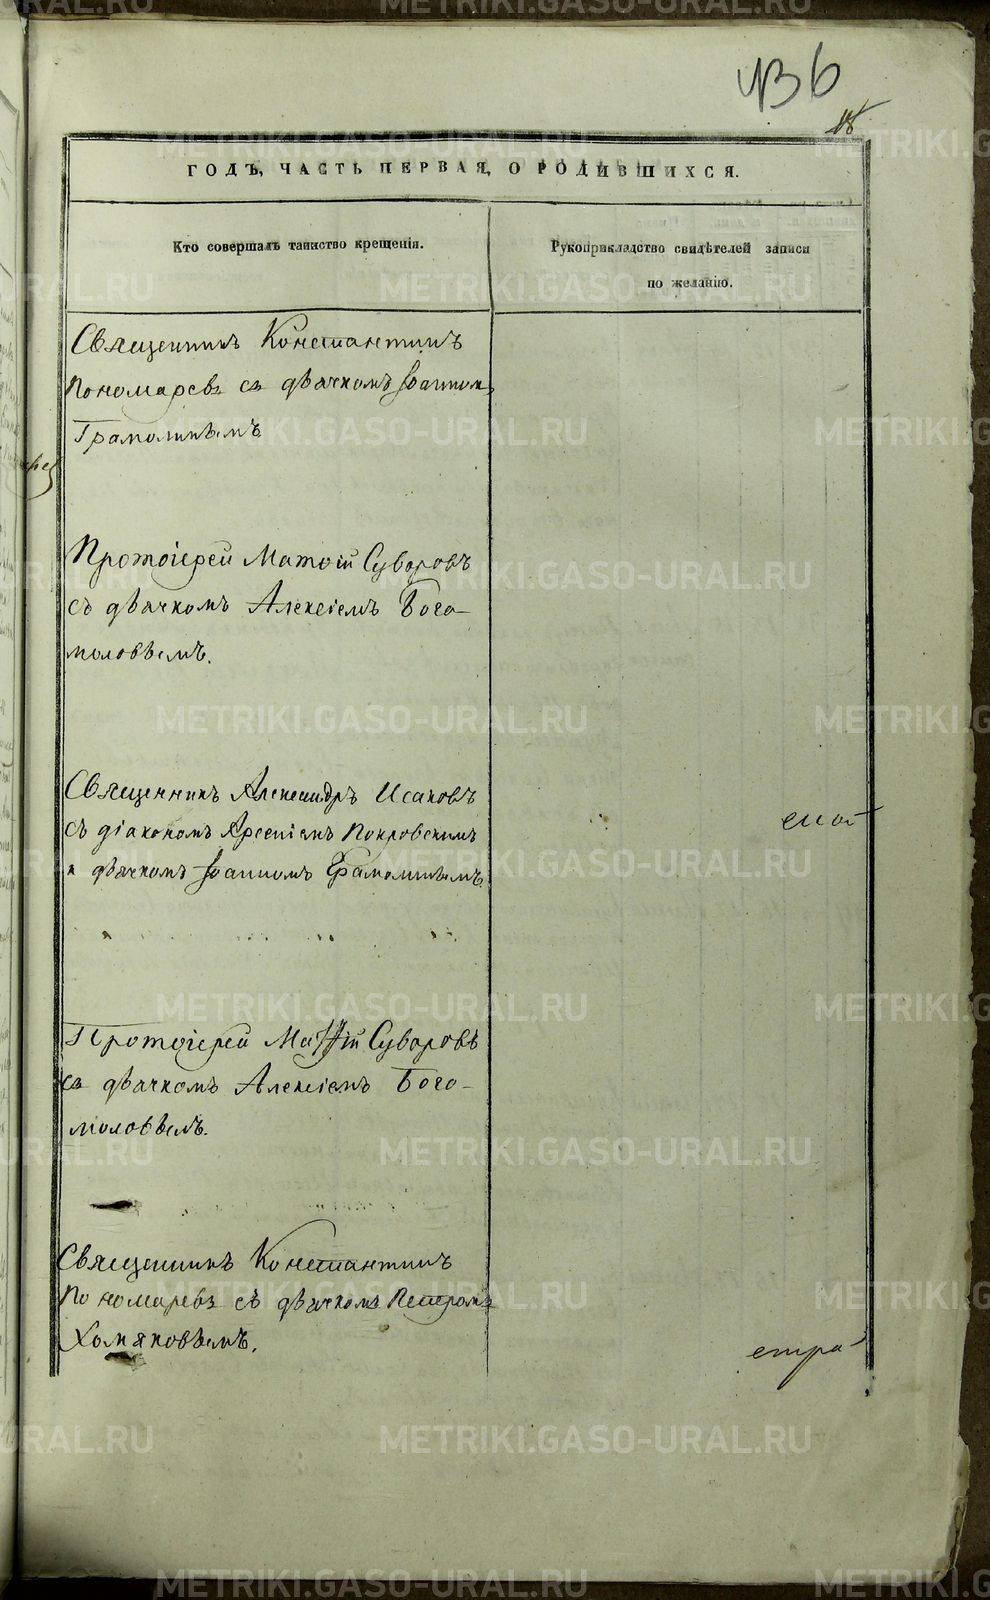 436
18
ГОДЪ, ЧАСТЬ ПЕРВАЯ, О РОДИВШИХСЯ.
Кто совершалъ таинство крещенія.
Рукоприкладство свидѣтелей записи
по желанію.
Священникъ Константинъ
Пономаревъ съ дьячкомъ Іоанном
Грамолинымъ
Протоіерей Матѳій Суворовъ
съ дьячкомъ Алексіемъ Бого-
моловымъ.
Священникъ Александръ Исаковъ
съ діакономъ Арсеніемъ Покровскимъ
и дьячкомъ Іоанномъ Грамолинымъ.
Протоіерей Матѳій Суворовъ
съ дьячкомъ Алексіемъ Бого-
моловымъ.
Священникъ Константинъ
Пономаревъ съ дьячкомъ Петромъ
Хомяковымъ.
METRIKI.GASO-URAL.RU